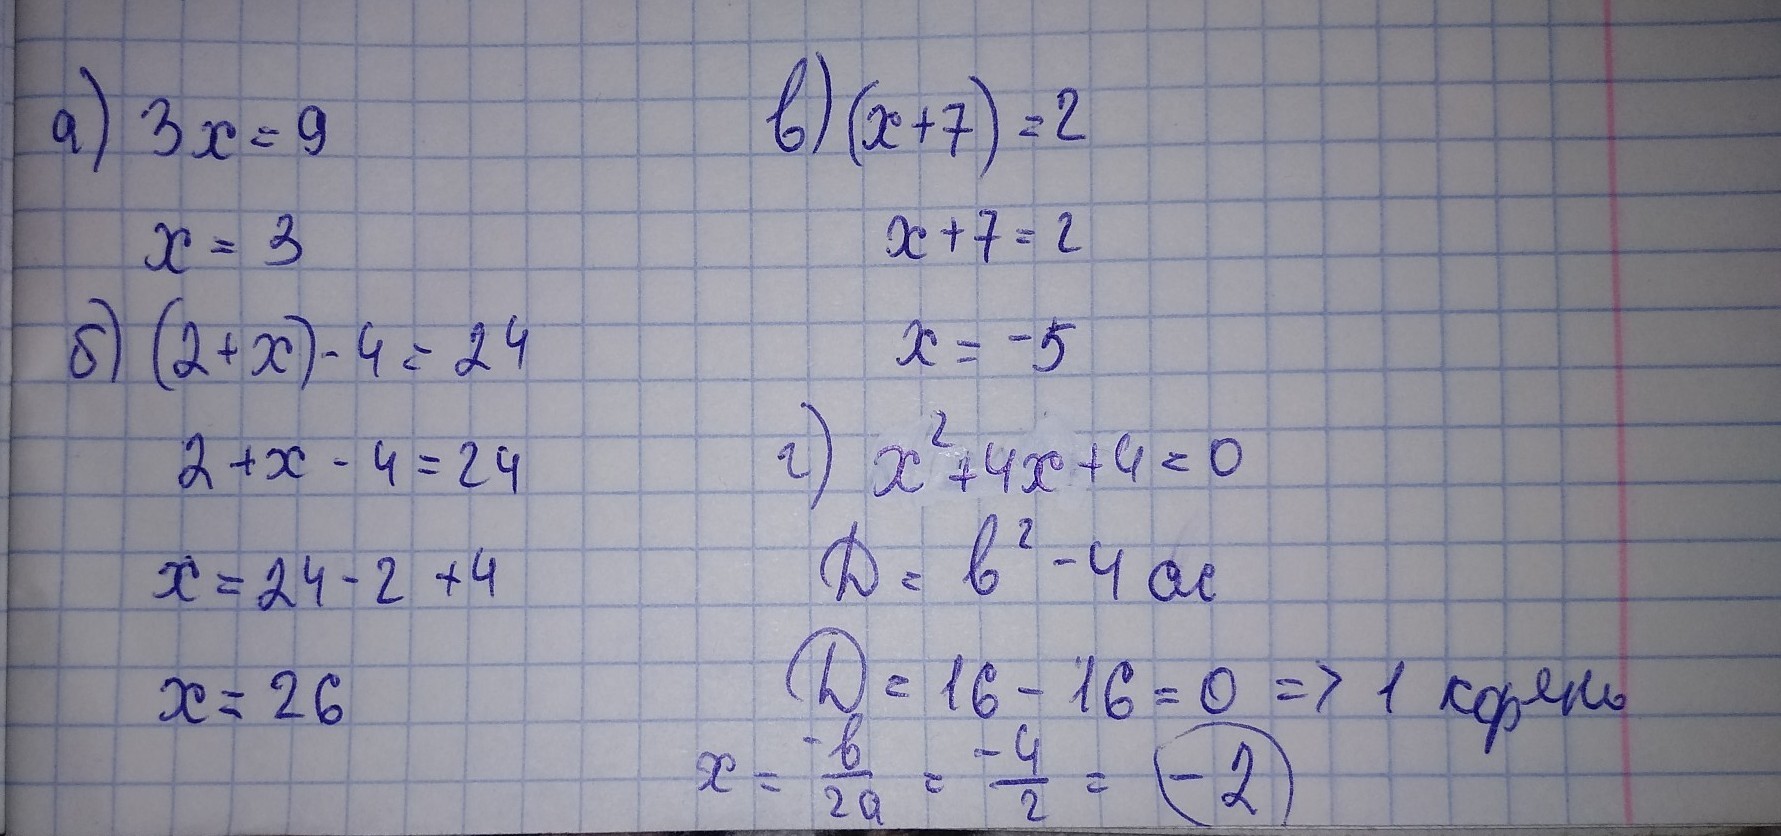 а) 3x = 9
x = 3
б) (2+x) - 4 = 24
2 + x - 4 = 24
x = 24 - 2 + 4
x = 26
в) (x+7) = 2
x + 7 = 2
x = -5
г) x² + 4x + 4 = 0
D = b² - 4ac
D = 16 - 16 = 0 => 1 корень
x = -b/2a = -4/2 = -2